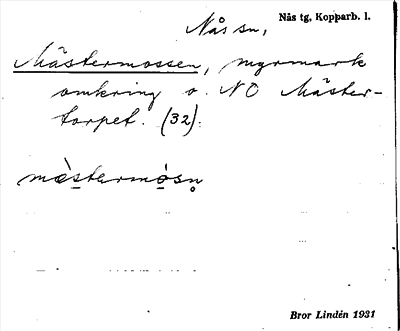 Nås sn,
Nås tg, Kopparb. l.
Mästermossen, myrmark
omkring o. NO Mäster-
torpet. (32).
mæ̀stermòsn̥
Bror Lindén 1931